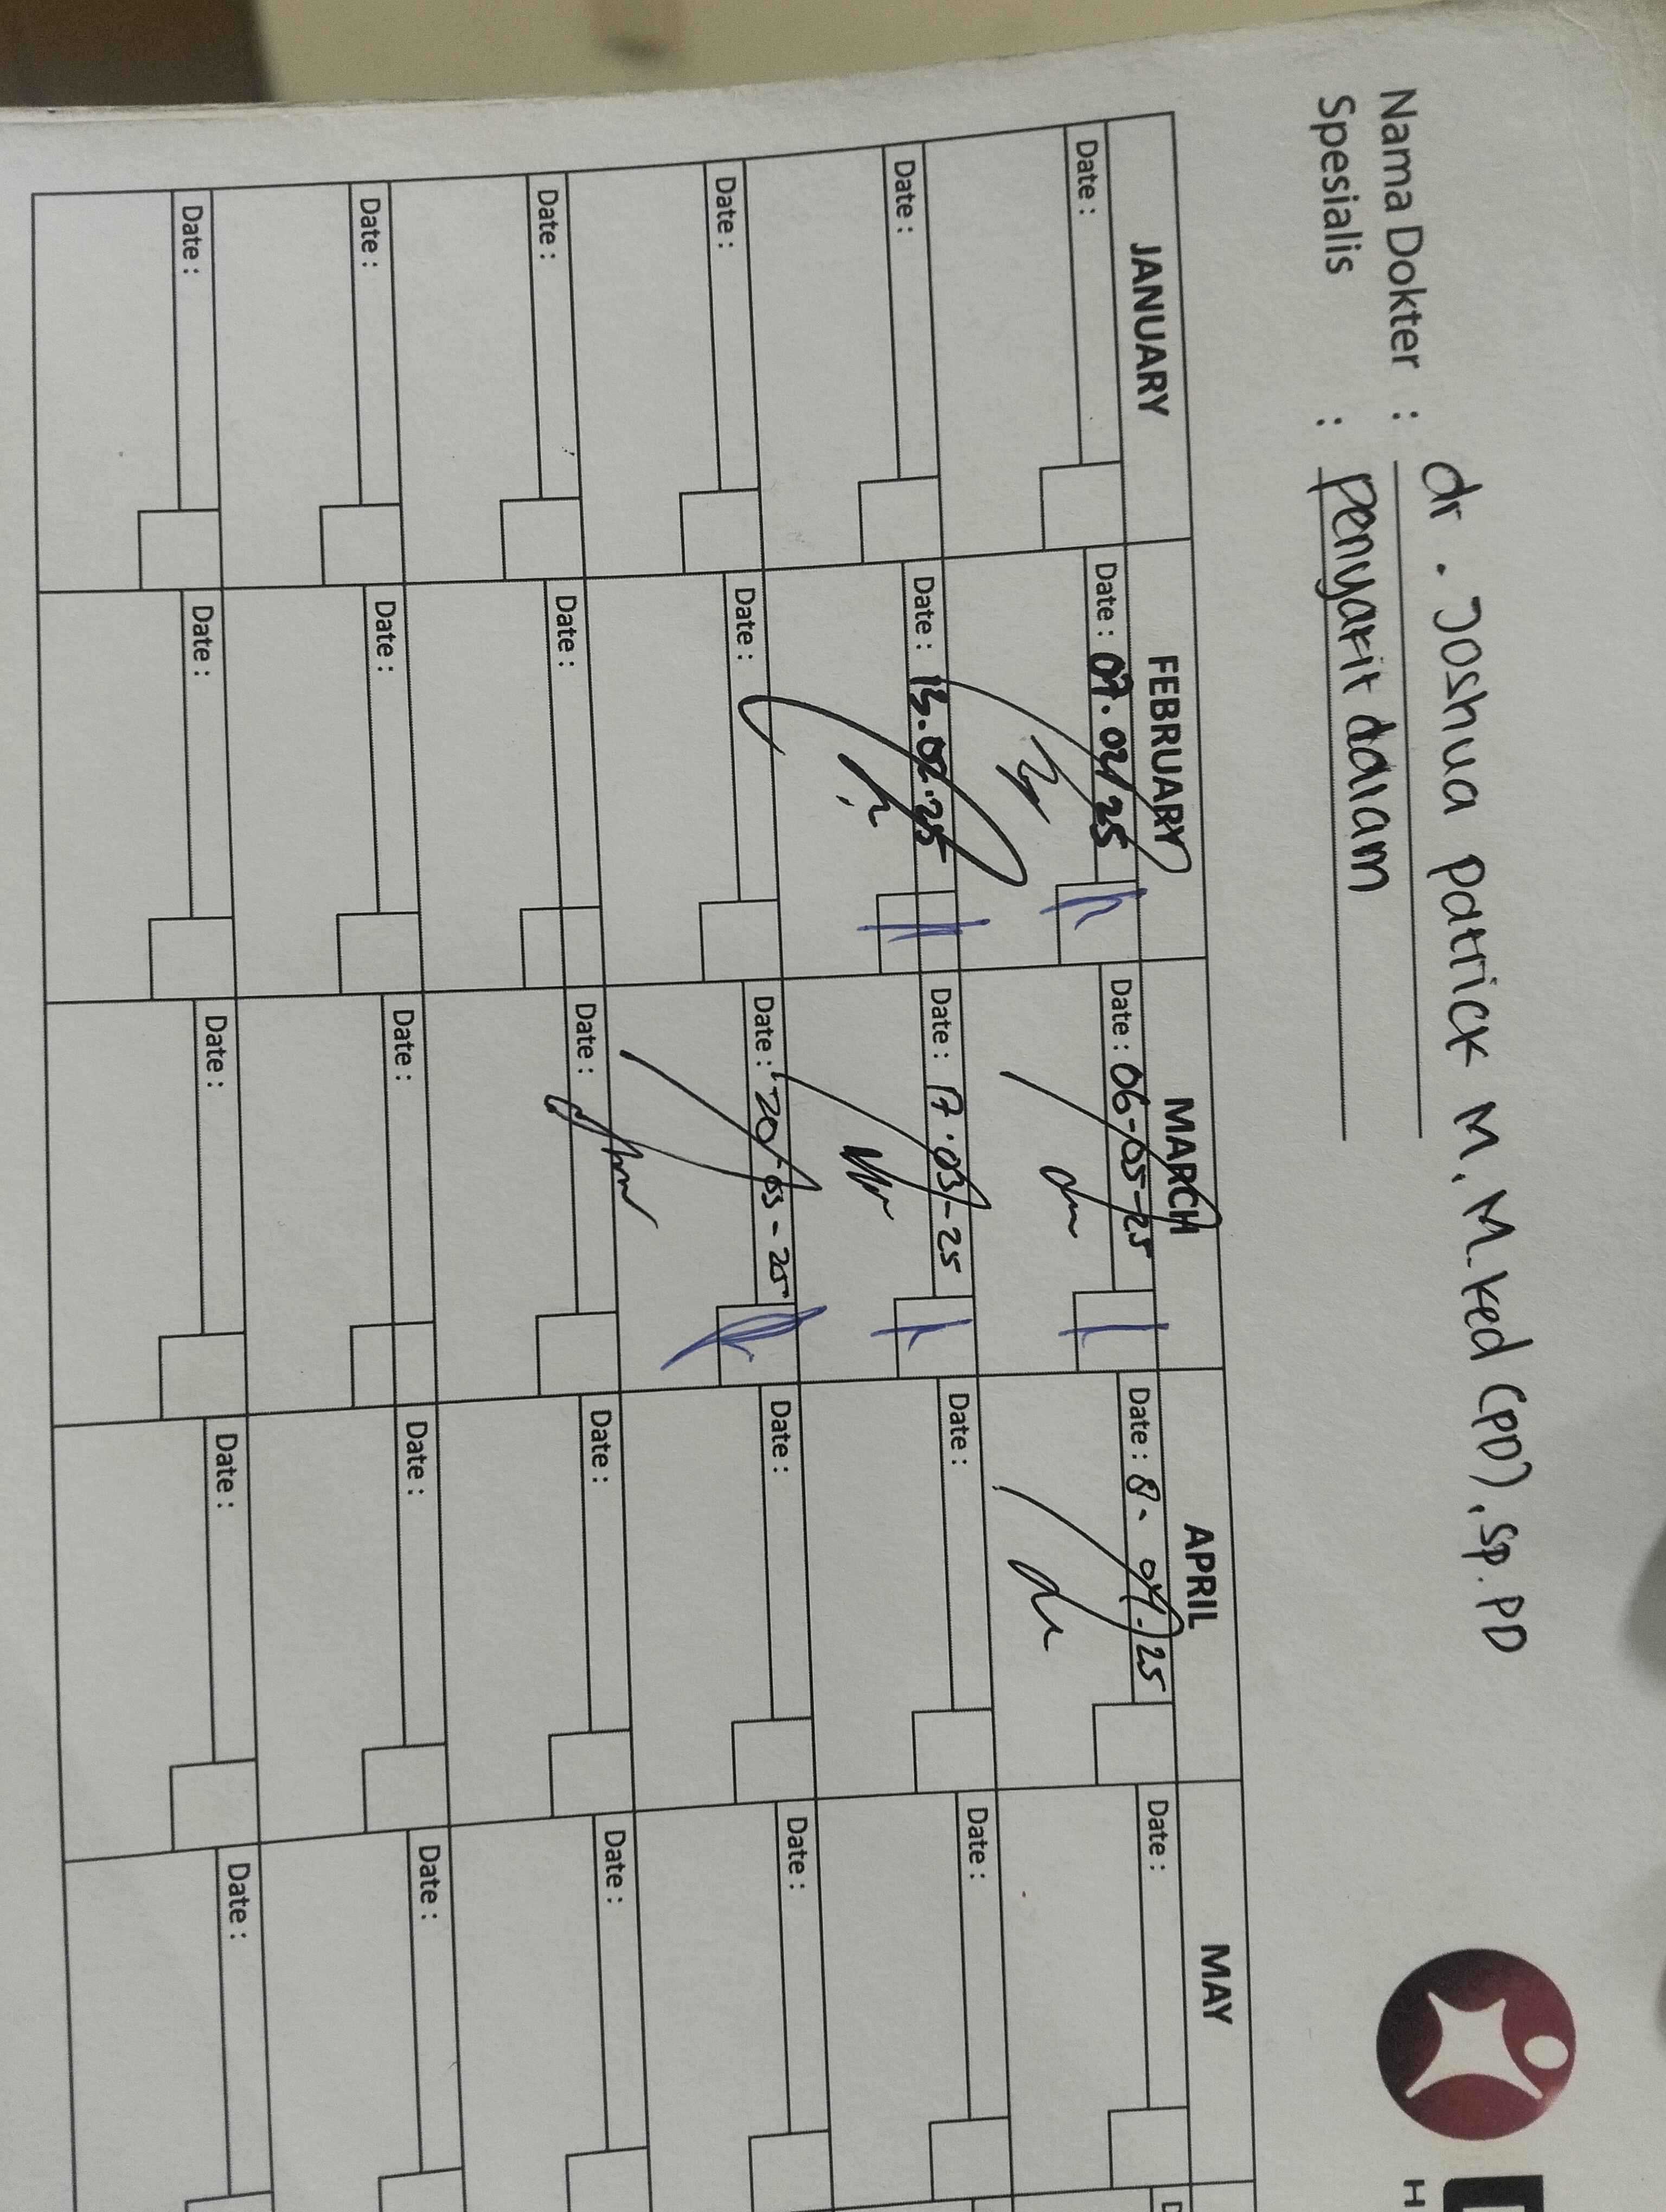 Nama Dokter : dr. Joshua Patrick M, M.Ked (PD), Sp.PD
Spesialis : Penyakit dalam
JANUARY FEBRUARY MARCH APRIL MAY
Date : Date : 07.02/25 Date : 06-03-25 Date : 8. 04.125 Date :
Date : Date : 13.02.25 Date : 17.03-25 Date : Date :
Date : Date : Date : 20-03-25 Date : Date :
Date : Date : Date : Date : Date :
Date : Date : Date : Date : Date :
Date : Date : Date : Date : Date :